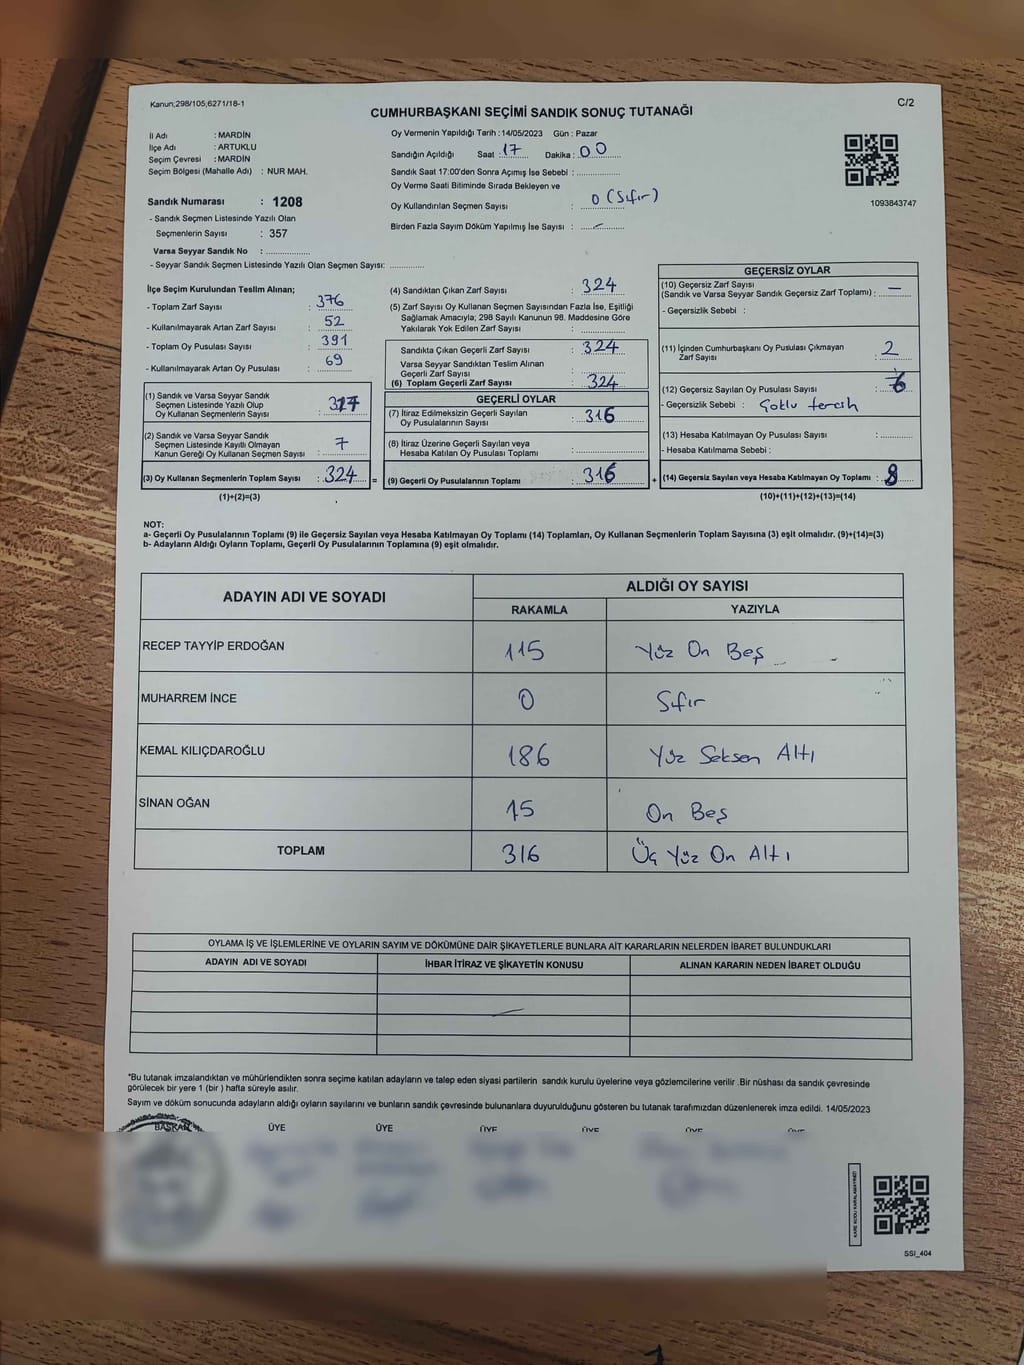 Kanun;298/105;6271/18-1
C/2
CUMHURBAŞKANI SEÇİMİ SANDIK SONUÇ TUTANAĞI
İl Adı : MARDİN
İlçe Adı : ARTUKLU
Seçim Çevresi : MARDİN
Seçim Bölgesi (Mahalle Adı) : NUR MAH.
Sandık Numarası : 1208
- Sandık Seçmen Listesinde Yazılı Olan
Seçmenlerin Sayısı : 357
Varsa Seyyar Sandık No : ..............
- Seyyar Sandık Seçmen Listesinde Yazılı Olan Seçmen Sayısı: ...........
Oy Vermenin Yapıldığı Tarih : 14/05/2023 Gün : Pazar
Sandığın Açıldığı Saat : 17 Dakika : 00
Sandık Saat 17:00'den Sonra Açımış İse Sebebi : ..............
Oy Verme Saati Bitiminde Sırada Bekleyen ve
Oy Kullandırılan Seçmen Sayısı : 0 (Sıfır)
Birden Fazla Sayım Döküm Yapılmış İse Sayısı : -
1093843747
İlçe Seçim Kurulundan Teslim Alınan;
- Toplam Zarf Sayısı : 376
- Kullanılmayarak Artan Zarf Sayısı : 52
- Toplam Oy Pusulası Sayısı : 391
- Kullanılmayarak Artan Oy Pusulası : 69
(1) Sandık ve Varsa Seyyar Sandık
Seçmen Listesinde Yazılı Olup
Oy Kullanan Seçmenlerin Sayısı : 317
(2) Sandık ve Varsa Seyyar Sandık
Seçmen Listesinde Kayıtlı Olmayan
Kanun Gereği Oy Kullanan Seçmen Sayısı : 7
(3) Oy Kullanan Seçmenlerin Toplam Sayısı : 324 =
(1)+(2)=(3)
(4) Sandıktan Çıkan Zarf Sayısı : 324
(5) Zarf Sayısı Oy Kullanan Seçmen Sayısından Fazla İse, Eşitliği
Sağlamak Amacıyla; 298 Sayılı Kanunun 98. Maddesine Göre
Yakılarak Yok Edilen Zarf Sayısı : ..............
Sandıkta Çıkan Geçerli Zarf Sayısı : 324
Varsa Seyyar Sandıktan Teslim Alınan
Geçerli Zarf Sayısı : ..............
(6) Toplam Geçerli Zarf Sayısı : 324
GEÇERLİ OYLAR
(7) İtiraz Edilmeksizin Geçerli Sayılan
Oy Pusulalarının Sayısı : 316
(8) İtiraz Üzerine Geçerli Sayılan veya
Hesaba Katılan Oy Pusulası Toplamı : ..............
(9) Geçerli Oy Pusulalarının Toplamı : 316 +
GEÇERSİZ OYLAR
(10) Geçersiz Zarf Sayısı
(Sandık ve Varsa Seyyar Sandık Geçersiz Zarf Toplamı) : —
- Geçersizlik Sebebi :
(11) İçinden Cumhurbaşkanı Oy Pusulası Çıkmayan
Zarf Sayısı : 2
(12) Geçersiz Sayılan Oy Pusulası Sayısı : 6
- Geçersizlik Sebebi : Çoklu tercih
(13) Hesaba Katılmayan Oy Pusulası Sayısı : ..........
- Hesaba Katılmama Sebebi :
(14) Geçersiz Sayılan veya Hesaba Katılmayan Oy Toplamı : 8
(10)+(11)+(12)+(13)=(14)
NOT:
a- Geçerli Oy Pusulalarının Toplamı (9) ile Geçersiz Sayılan veya Hesaba Katılmayan Oy Toplamı (14) Toplamları, Oy Kullanan Seçmenlerin Toplam Sayısına (3) eşit olmalıdır. (9)+(14)=(3)
b- Adayların Aldığı Oyların Toplamı, Geçerli Oy Pusulalarının Toplamına (9) eşit olmalıdır.
ADAYIN ADI VE SOYADI ALDIĞI OY SAYISI
RAKAMLA YAZIYLA
RECEP TAYYİP ERDOĞAN 115 Yüz On Beş
MUHARREM İNCE 0 Sıfır
KEMAL KILIÇDAROĞLU 186 Yüz Seksen Altı
SİNAN OĞAN 15 On Beş
TOPLAM 316 Üç Yüz On Altı
OYLAMA İŞ VE İŞLEMLERİNE VE OYLARIN SAYIM VE DÖKÜMÜNE DAİR ŞİKAYETLERLE BUNLARA AİT KARARLARIN NELERDEN İBARET BULUNDUKLARI
ADAYIN ADI VE SOYADI İHBAR İTİRAZ VE ŞİKAYETİN KONUSU ALINAN KARARIN NEDEN İBARET OLDUĞU
*Bu tutanak imzalandıktan ve mühürlendikten sonra seçime katılan adayların ve talep eden siyasi partilerin sandık kurulu üyelerine veya gözlemcilerine verilir .Bir nüshası da sandık çevresinde
görülecek bir yere 1 (bir ) hafta süreyle asılır.
Sayım ve döküm sonucunda adayların aldığı oyların sayılarını ve bunların sandık çevresinde bulunanlara duyurulduğunu gösteren bu tutanak tarafımızdan düzenlenerek imza edildi. 14/05/2023
BAŞKAN ÜYE ÜYE ÜYE ÜYE ÜYE ÜYE
KARE KODU KARALAMAYINIZ!
SSI_404